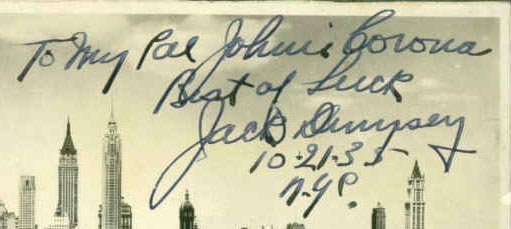 To My Pal Johnie Corona
Best of Luck
Jack Dempsey
10-21-35
N.Y.C.